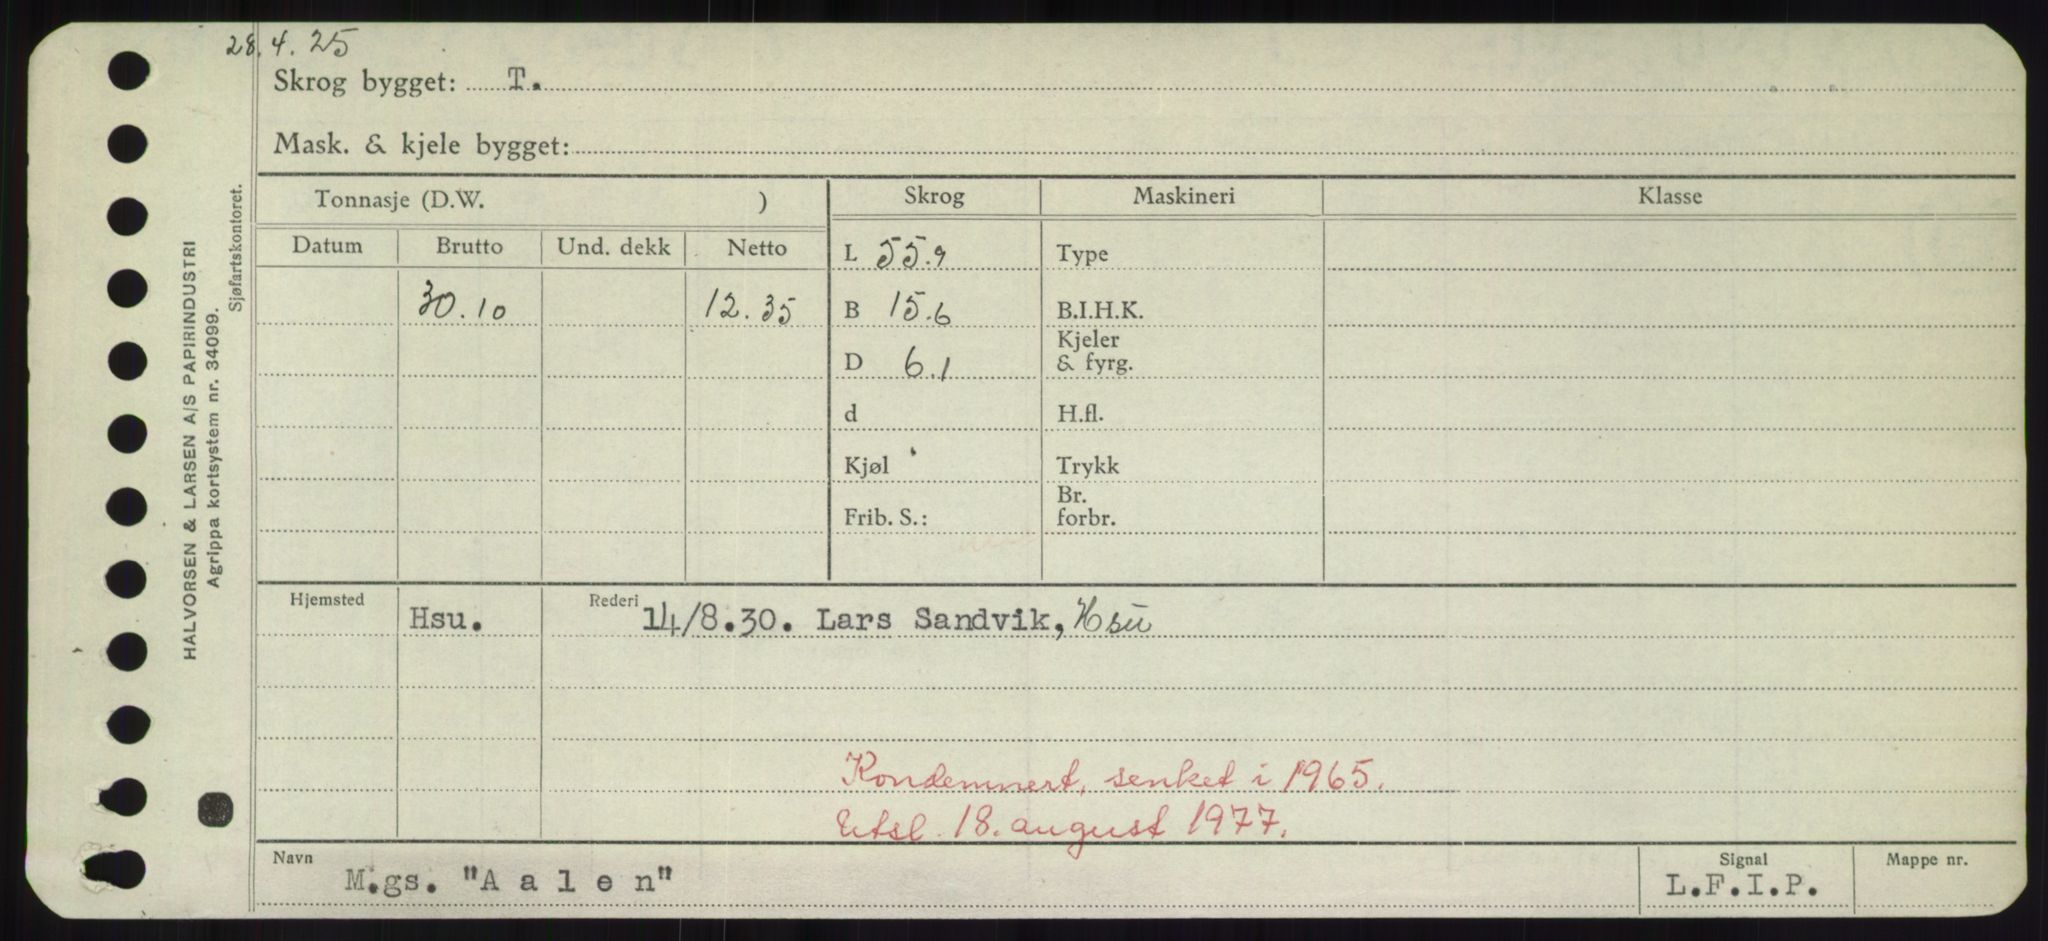 28.4.25
Skrog bygget: T.
Mask. & kjele bygget:
HALVORSEN & LARSEN A/S PAPIRINDUSTRI
Agrippa kortsystem nr. 34099.
Sjøfartskontoret.
Tonnasje (D.W. ) Skrog Maskineri Klasse
Datum Brutto Und. dekk Netto L 55.9 Type
30.10 12.35 B 15.6 B.I.H.K.
D 6.1 Kjeler & fyrg.
d H.fl.
Kjøl Trykk
Frib. S.: Br. forbr.
Hjemsted Hsu. Rederi 14/8.30. Lars Sandvik, Hsu
Kondemnert, senket i 1965.
Utsl. 18. august 1977.
Navn M.gs. "Aalen" Signal L.F.I.P. Mappe nr.